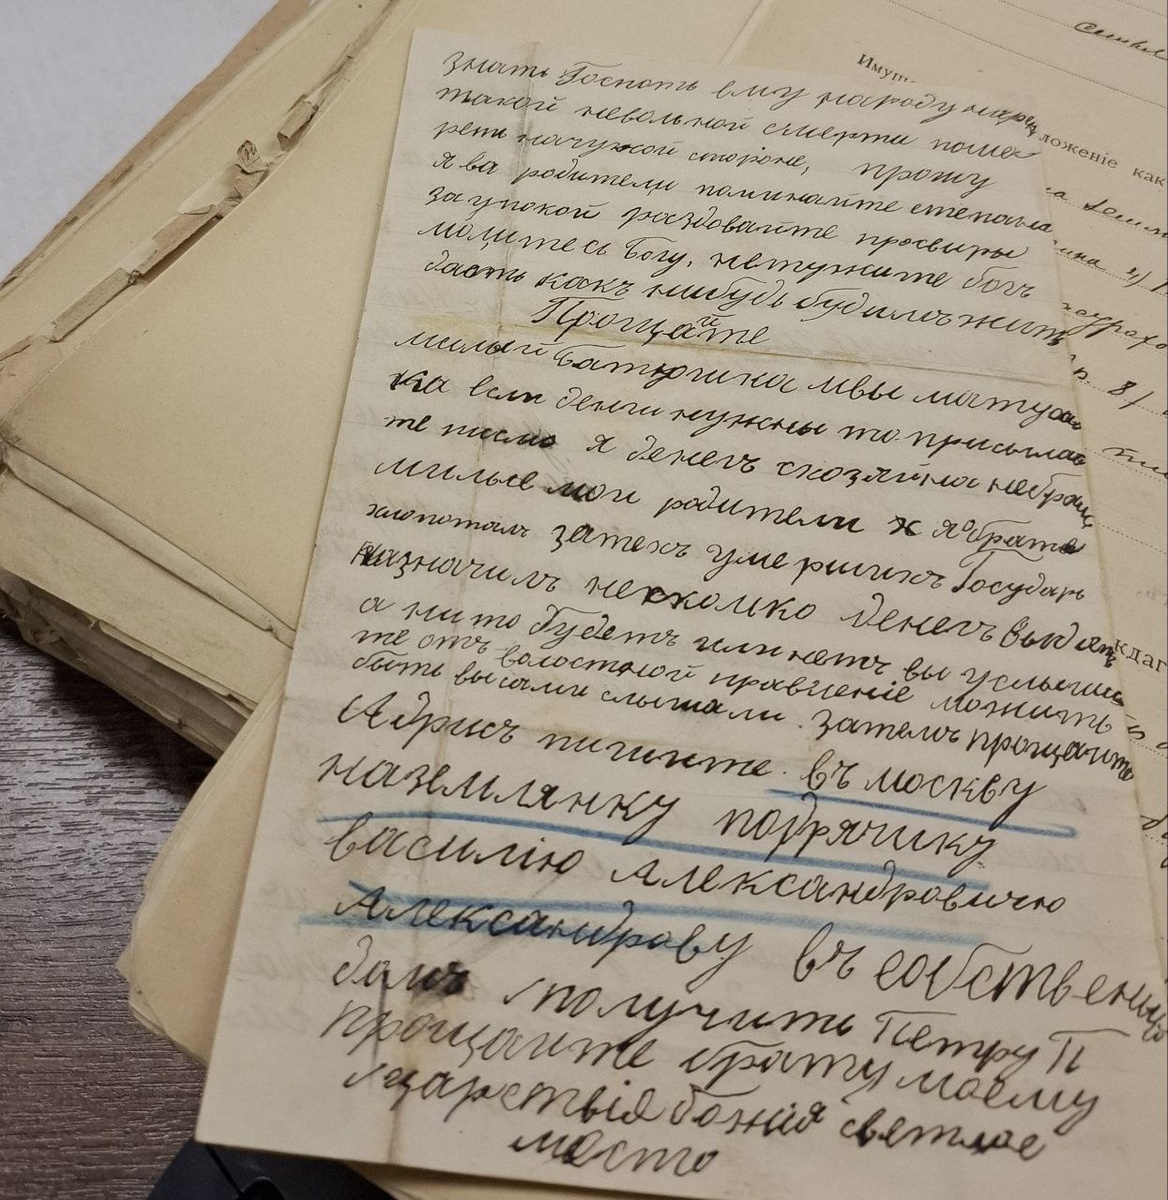 знать Господь ему народу нарек
такой невольной смерти поме
реть начужой стороне, прошу
я ва родители поминайте степана
за упокой раздовайте просвиры
молитесь Богу, нетужите богъ
дасть какъ нибудь будимъ жит
Прощайте
милый Батюшка ивы матуш
ка если денги нужны то присылай
те писмо я денегъ схозяина небрал
милые мои родители я обрате
хлопоталъ затехъ умершихъ Государь
назначилъ несколко денегъ выдать
а ни то будетъ или нетъ вы услыши
те отъ волостной правление можить
быть высами слышали. Затемъ прощайте
Адрисъ пишите въ москву
наземлянку подрячику
василію Александровичю
Александрову въ собственный
домъ получить Петру П
прощайте брату моему
царствія божія светлое
место
Имущ
ложеніе как
8)